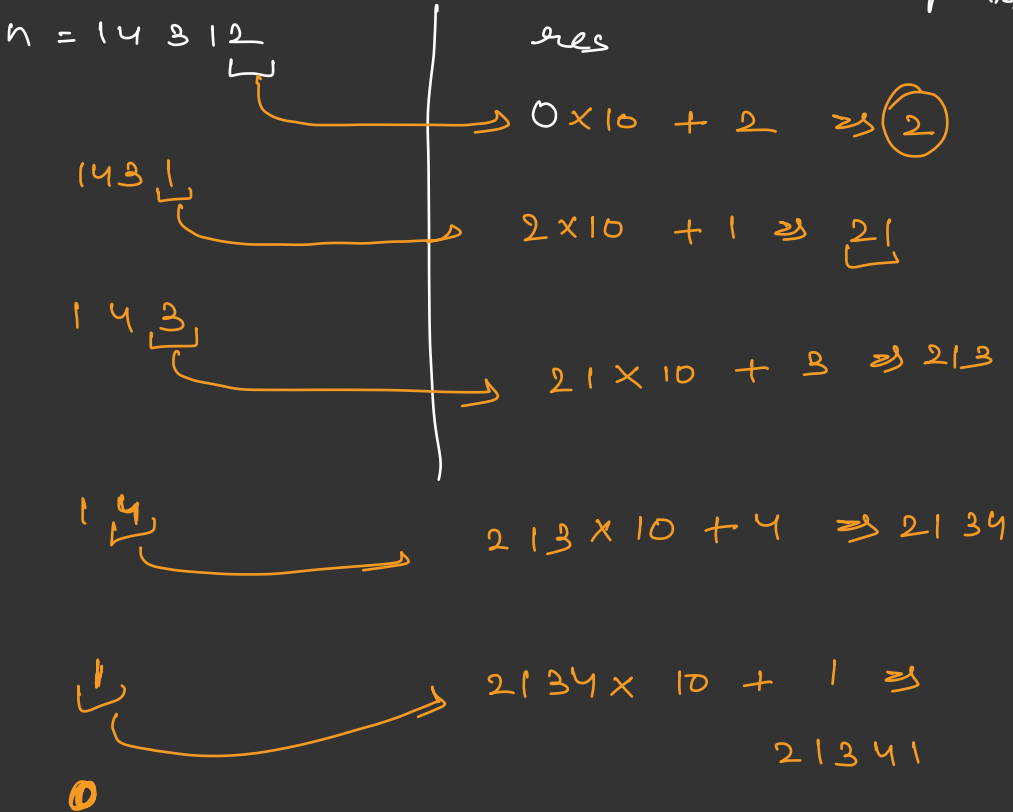 n = 14312
res
0 × 10 + 2 ⇒ 2
1431
2 × 10 + 1 ⇒ 21
143
21 × 10 + 3 ⇒ 213
14
213 × 10 + 4 ⇒ 2134
1
2134 × 10 + 1 ⇒
21341
0